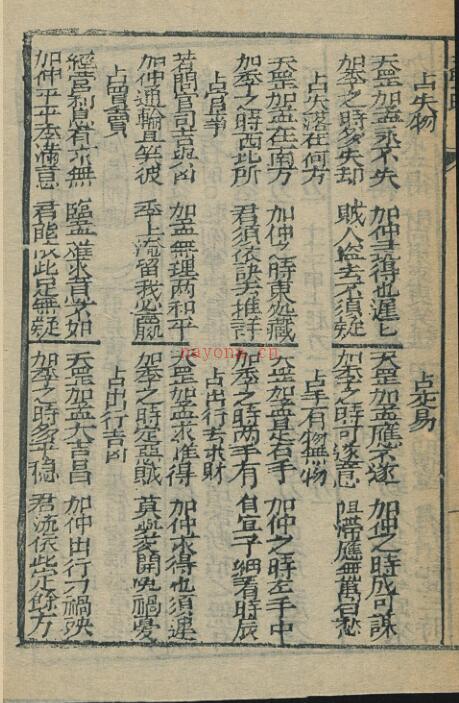 占失物
天罡加孟永不失 加仲尋得也遲
加季之時多失却 賊人盜去不須疑
占失落在何方
天罡加孟在南方 加仲之時東処藏
加季之時西北所 君須依訣去推詳
占官事
若問官司吉與凶 加孟無理両和平
加仲通輸直笑彼 季上淹留我必贏
占買賣
經營利息有亦無 臨孟進求意不如
加仲平平季滿意 君能依此足無疑
占交易
天罡加孟應不遂 加仲之時成可謀
加季之時可遂意 阻滯應無萬百愁
占手有物無物
天罡加孟是右手 加仲之時左手中
加季之時两手有 自宜子細看時辰
占出行去求財
天罡加孟求准得 加仲求得也須遲
加季之時定恐賊 莫與開免禍憂
占出行吉凶
天罡加孟大吉昌 加仲出行有禍殃
加季之時多平穩 君流依此足餘方
nayona.cn